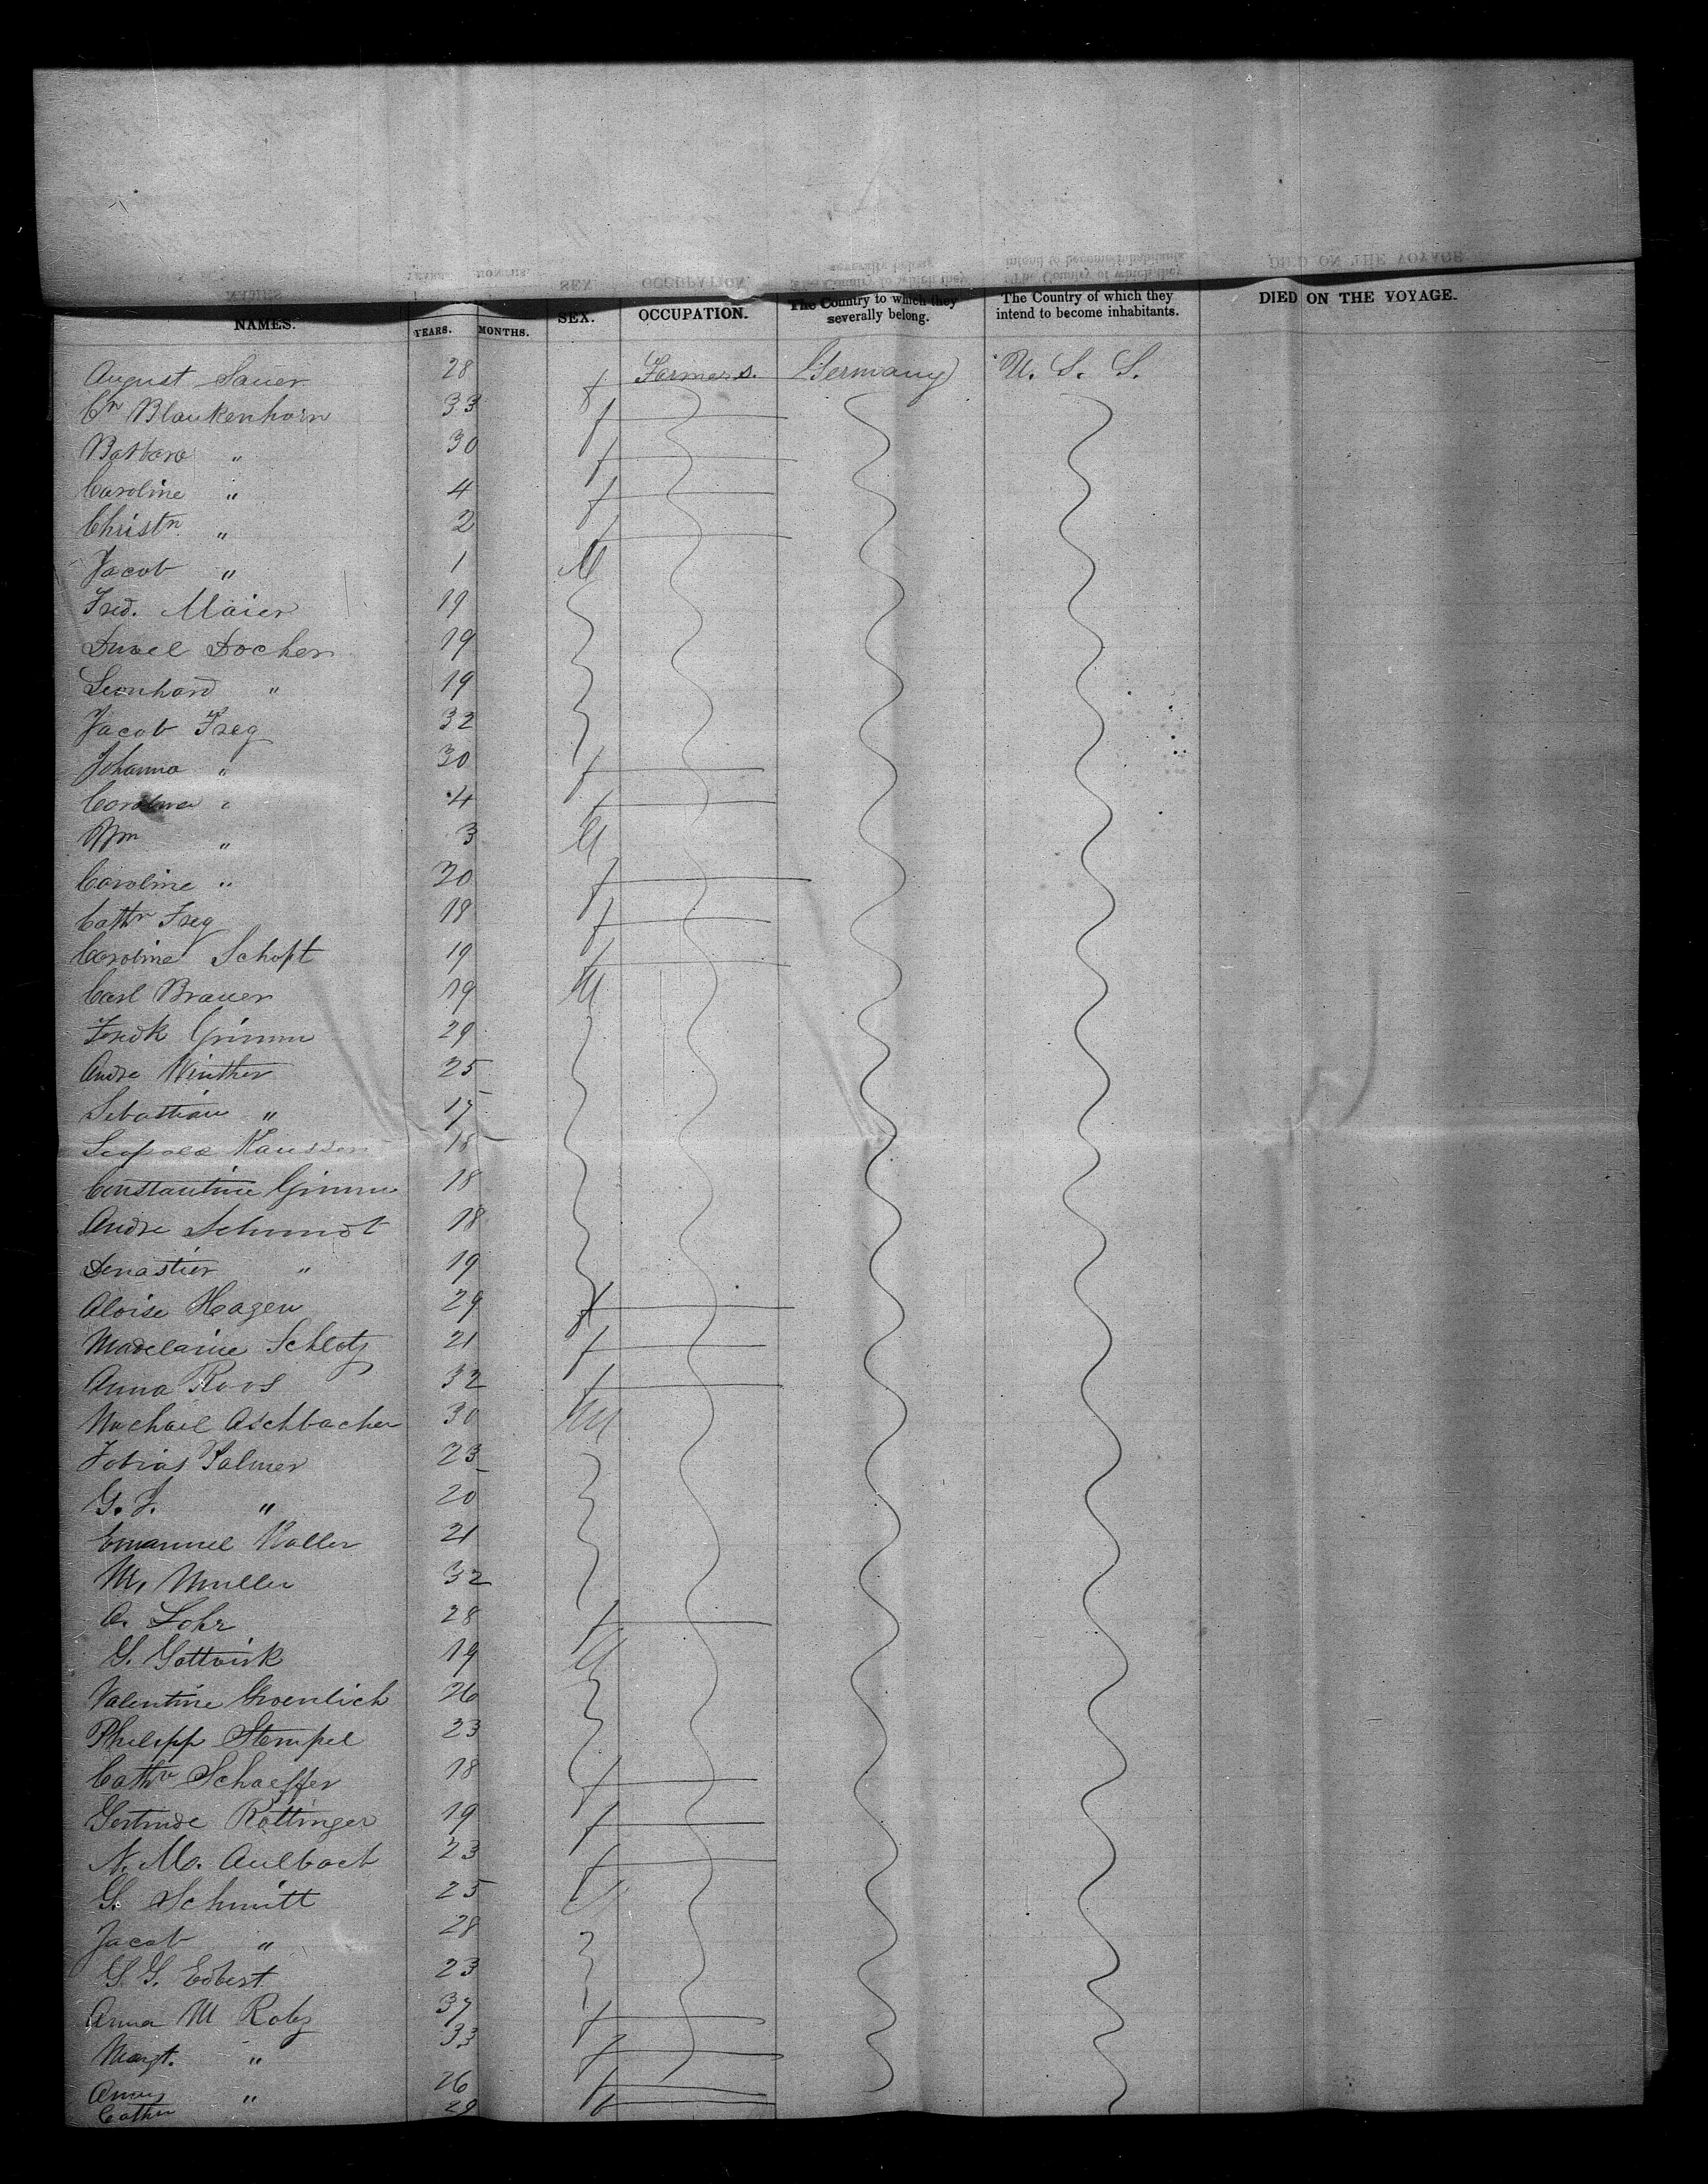 NAMES. YEARS. MONTHS. SEX. OCCUPATION. The Country to which they severally belong. The Country of which they intend to become inhabitants. DIED ON THE VOYAGE.
August Sauer 28 f Farmers. Germany U. S. S.
Cn Blankenhorn 33 f
Barbara " 30 f
Caroline " 4 f
Christn " 2 f
Jacob " 1 M
Fred. Maier 19
Docher 19
Leonhard " 19
Jacob Freg 32
Johanna " 30 f
" 4 f
Wm " 3 M
Caroline " 20 f
Cathn Freg 18 f
Caroline Schopt 19 f
Carl Brauer 19 M
Fredk Grimm 29
Andre Winther 25
Sebastian " 17
18
Constantine Grimm 18
Andre Schmidt 18
" 19
Aloise Hagen 29 f
Madelaine Schlotz 21 f
Anna Roos 32 f
Michael Aschbacher 30 M
Tobias Palmer 23
G. F. " 20
Emanuel Koller 21
M. Muller 32
A. Lohr 28 f
G. 19 M
Valentine Groenlich 26
Philipp Stempel 23
Cathn Schaeffer 18 f
Gertrude Rottinger 19 f
N. M. Aulbach 23 f
G. Schmitt 25 M
Jacob " 28
G. G. Edbert 23
Anna M Roby 37 f
Margt. " 33 f
" 26 f
29 f